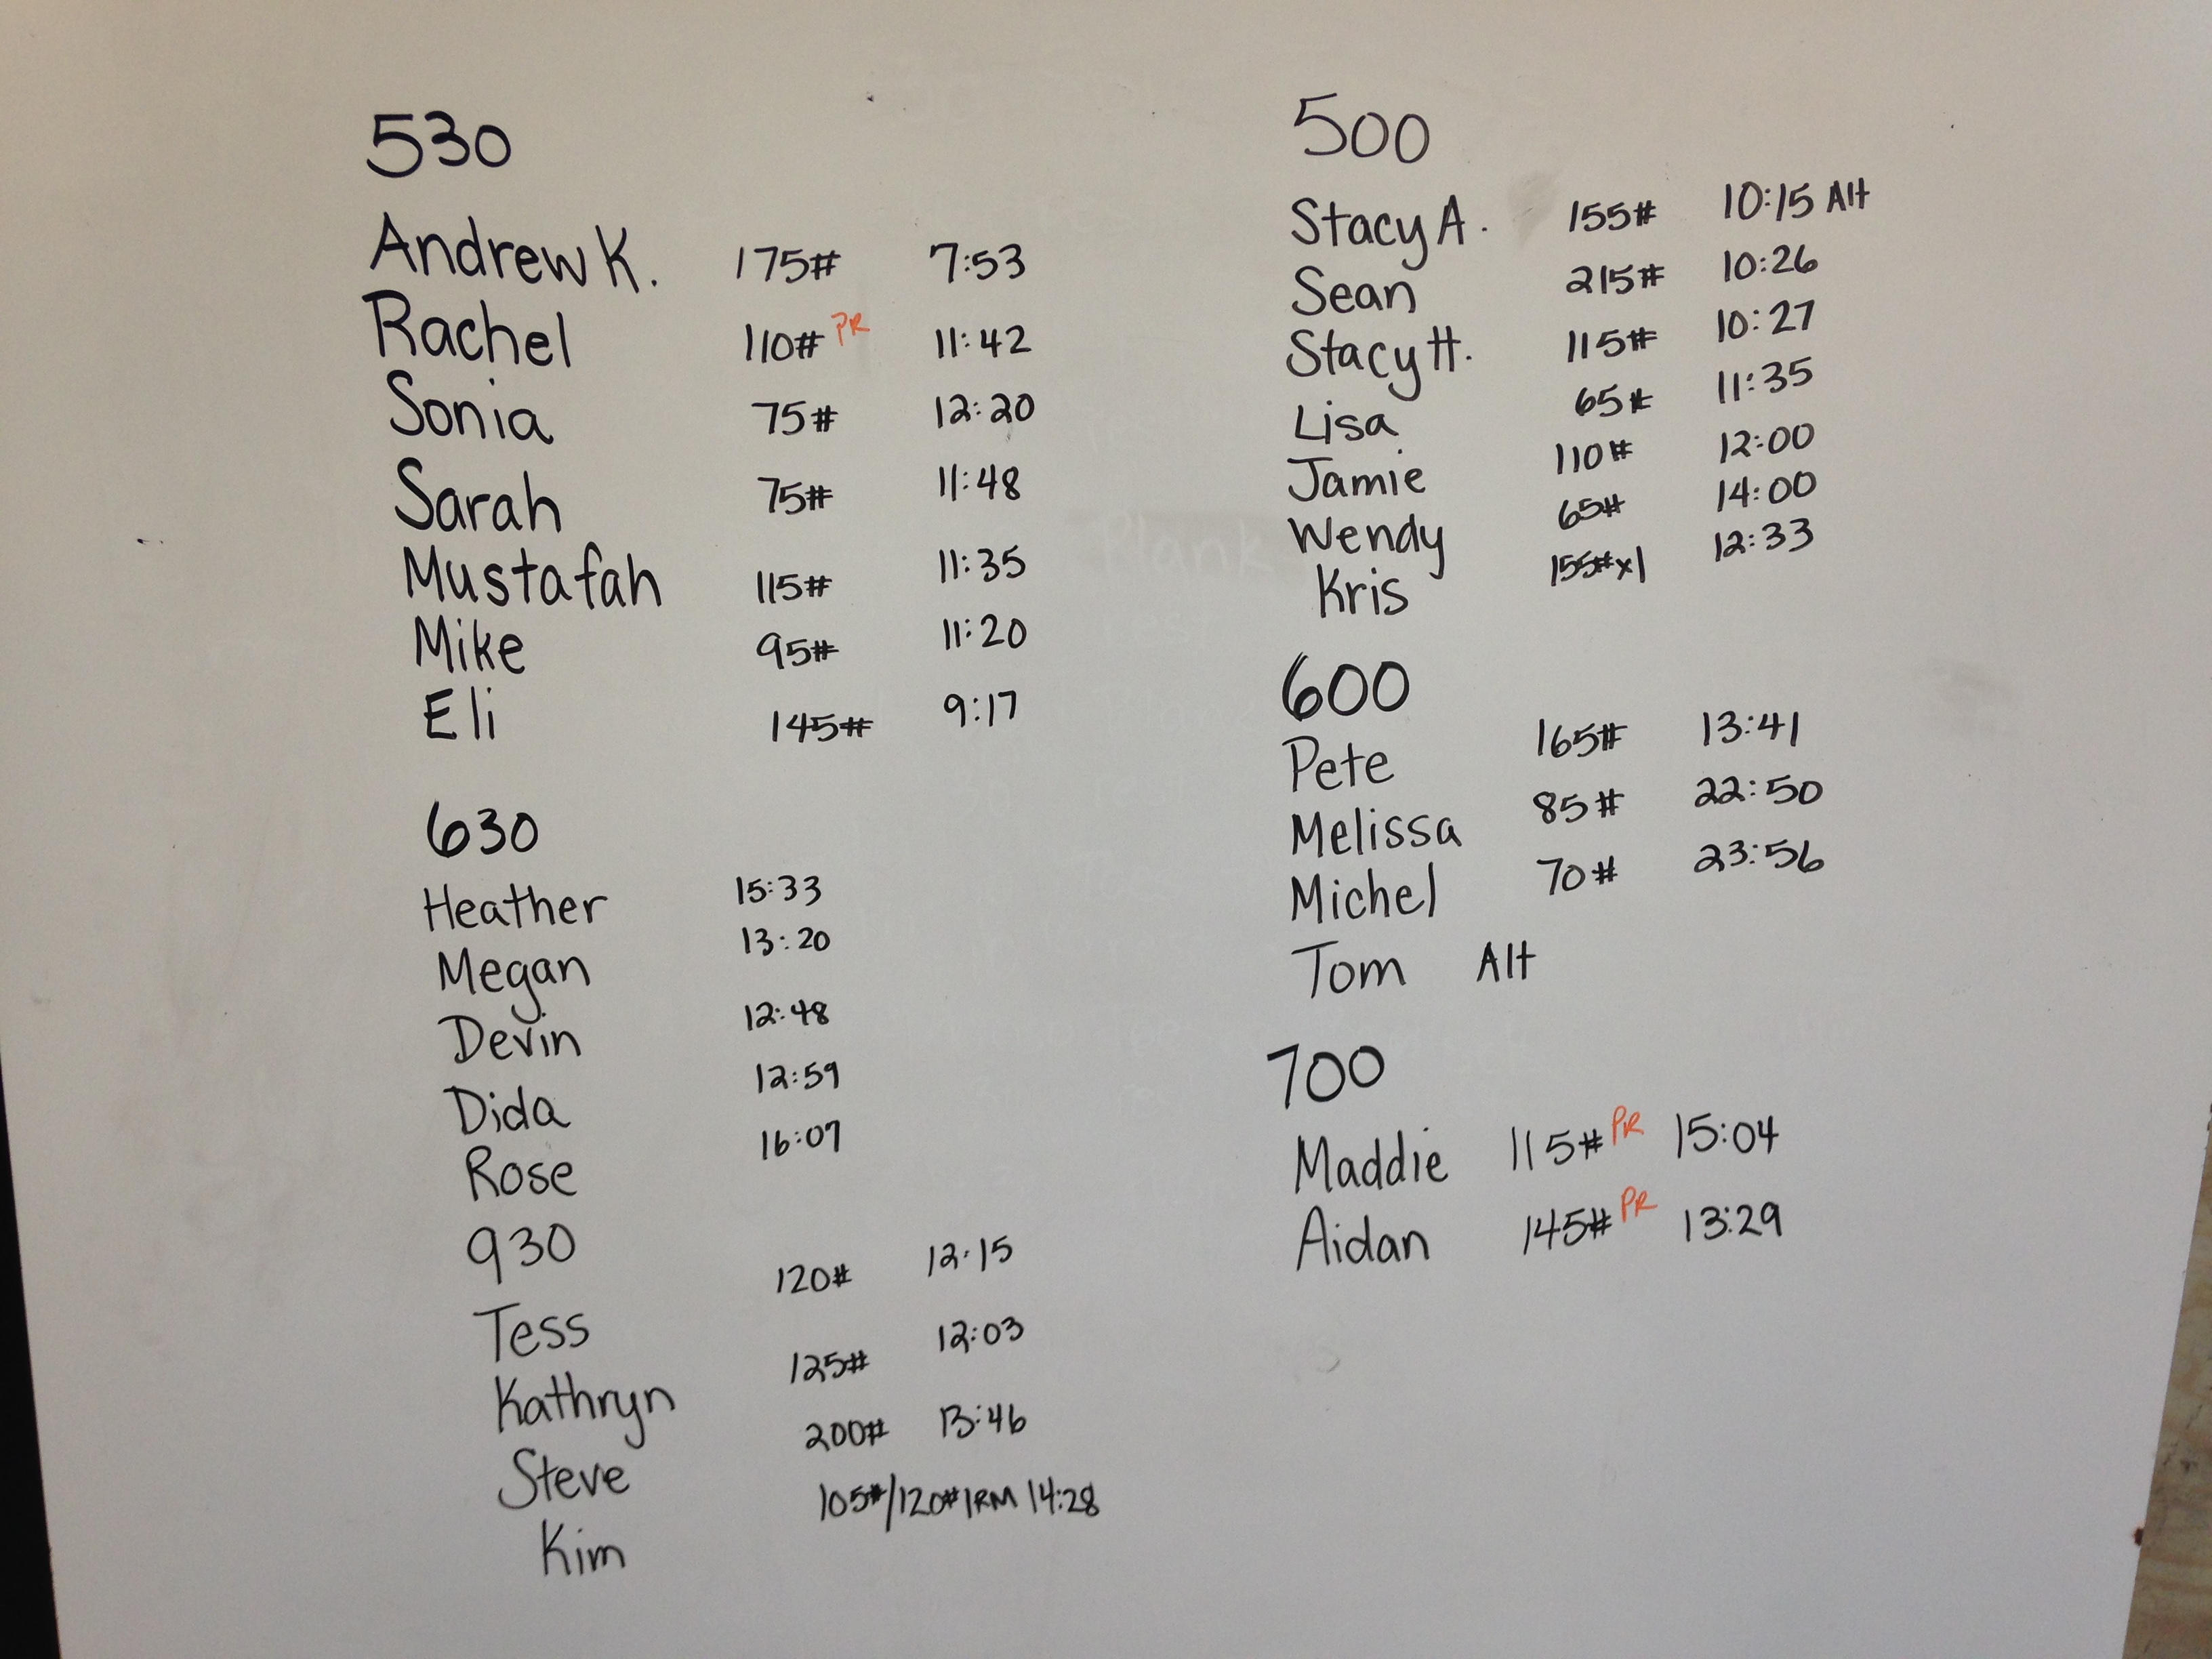 530
Andrew K. 175# 7:53
Rachel 110# PR 11:42
Sonia 75# 12:20
Sarah 75# 11:48
Mustafah 115# 11:35
Mike 95# 11:20
Eli 145# 9:17
630
Heather 15:33
Megan 13:20
Devin 12:48
Dida 12:59
Rose 16:07
930
Tess 120# 12:15
Kathryn 125# 12:03
Steve 200# 13:46
Kim 105#/120# 1RM 14:28
500
Stacy A. 155# 10:15 Alt
Sean 215# 10:26
Stacy H. 115# 10:27
Lisa 65# 11:35
Jamie 110# 12:00
Wendy 65# 14:00
Kris 155#x1 12:33
600
Pete 165# 13:41
Melissa 85# 22:50
Michel 70# 23:56
Tom Alt
700
Maddie 115# PR 15:04
Aidan 145# PR 13:29
Plank